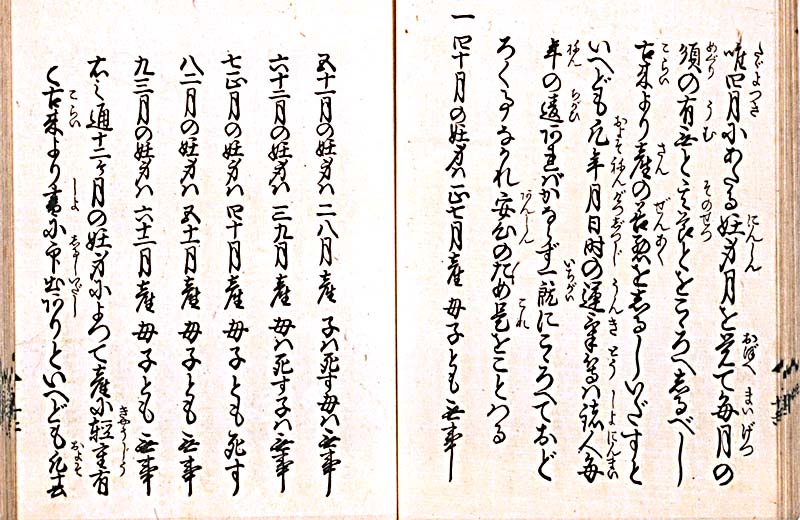 唯四月にあたる妊身月を覚て毎月の
の有無と其説とをこころへ志るべし
古来より産の善悪を志るしいだすと
いへども凡年月日時の運気等は諸人毎
年の違あればかならず一概にこころへておど
ろく事なかれ安心のため是をことはる
一 四十月の妊身ハ 正七月産 母子とも無事
五十一月の妊身ハ 二八月産 子ハ死す母ハ無事
六十二月の妊身ハ 三九月産 母ハ死す子ハ無事
七正月の妊身ハ 四十月産 母子とも死す
八二月の妊身ハ 五十一月産 母子とも無事
九三月の妊身ハ 六十二月産 母子とも無事
右之通十二ヶ月の妊身によつて産に軽重有
く古来より書に印出ありといへども凡